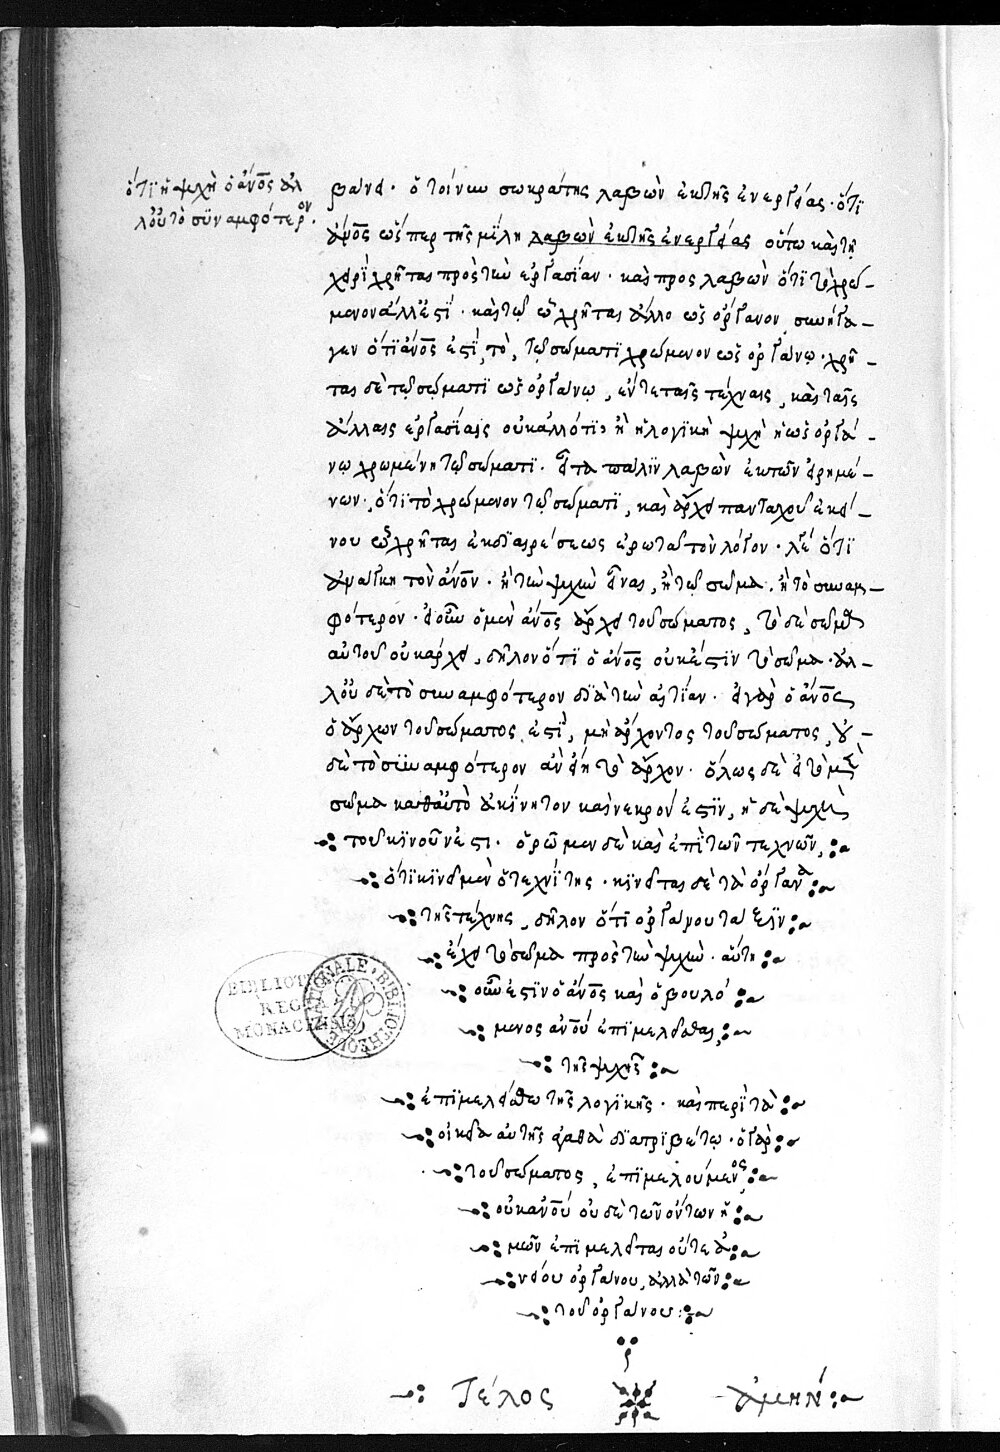 ὅτι ἡ ψυχὴ ὁ ἄνος ἀλ
λ' οὐ τὸ συναμφότερον.
βαίνει. ὁ τοίνυν σωκράτης λαβὼν ἐκ τῆς ἐνεργείας. ὅτι
ἄνος ὥσπερ τῇ σμίλῃ λαβὼν ἐκ τῆς ἐνεργείας οὕτω καὶ τῇ
χειρὶ χρῆται πρὸς τὴν ἐργασίαν. καὶ προσλαβὼν ὅτι τὸ χρώ_
μενον ἄλλό ἐστί. καὶ τῷ ᾧ χρῆται ἄλλο ὡς ὄργανον, συνήγα_
γεν ὅτι ἄνος ἐστὶ, τὸ, τῷ σώματι χρώμενον ὡς ὀργάνῳ. χρῆ_
ται δὲ τῷ σώματι ὡς ὀργάνῳ, ἔν τε ταῖς τέχναις, καὶ ταῖς
ἄλλαις ἐργασίαις οὐκ ἄλλό τι, ἢ ἡ λογικὴ ψυχὴ ἡ ὡς ὀργά_
νῳ χρωμένη τῷ σώματι. εἶτα πάλιν λαβὼν ἐκ τῶν εἰρημέ_
νων, ὅτι τὸ χρώμενον τῷ σώματι, καὶ ἄρχει πανταχοῦ ἐκεί_
νου ᾧ χρῆται ἐκ διαιρέσεως ἐρωτᾷ τὸν λόγον. λέγει ὅτι
ἀνάγκη τὸν ἄνον. ἢ τὴν ψυχὴν εἶναι, ἢ τὸ σῶμα. ἢ τὸ συναμ_
φότερον. εἰ οὖν ὁ μὲν ἄνος ἄρχει τοῦ σώματος, τὸ δὲ σῶμα
αὐτοῦ οὐκ ἄρχει, δῆλον ὅτι ὁ ἄνος οὐκ ἔστιν τὸ σῶμα. ἀλ_
λ' οὐ δὲ τὸ συναμφότερον διὰ τὴν αἰτίαν. εἰ γὰρ ὁ ἄνος
ὁ ἄρχων τοῦ σώματος ἐστὶ, μὴ ἄρχοντος τοῦ σώματος, οὐ_
δὲ τὸ συναμφότερον ἂν εἴη τὸ ἄρχον. ὅλως δὲ εἰ τὸ μὲν
σῶμα καθ' αὑτὸ ἀκίνητον καὶ νεκρόν ἐστιν, ἡ δὲ ψυχὴ
τὸ κινοῦν ἐστι. ὁρῶμεν δὲ καὶ ἐπὶ τῶν τεχνῶν,
ὅτι κινεῖ μὲν ὁ τεχνίτης. κινεῖται δὲ τὰ ὄργανα
τῆς τέχνης, δῆλον ὅτι ὀργάνου τάξιν
ἔχει τὸ σῶμα πρὸς τὴν ψυχὴν. αὕτη
οὖν ἐστὶν ὁ ἄνος καὶ ὁ βουλό
μενος ἀνου ἐπιμελεῖσθαι,
τῆς ψυχῆς
ἐπιμελείσθω τῆς λογικῆς. καὶ περὶ τὰ
οἰκεῖα αὐτῆς ἀγαθὰ διατριβέτω. ὁ γὰρ
τοῦ σώματος, ἐπιμελούμενος,
οὐκ ἀνου οὐ δὲ τῶν ὄντων ἡ
μῶν ἐπιμελεῖται οὔτε ἀ
νείου ὀργάνου, ἀλλὰ τῶν
τοῦ ὀργάνου:
Τέλος
Ἀμήν
BIBLIOTHECA
REGIA
MONACENSIS
BIBLIOTHEQUE NATIONALE